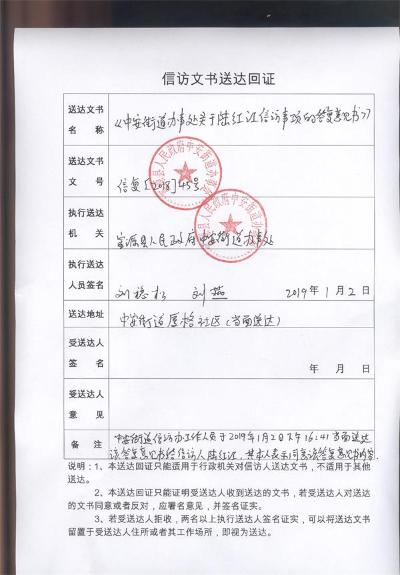 信访文书送达回证
送达文书
名 称
《中安街道办事处关于陆红江信访事项的答复意见书》
送达文书
文 号
信复[2018]45号
执行送达
机 关
富源县人民政府中安街道办事处
执行送达
人员签名
2019年1月2日
送达地址
中安街道 社区(当面送达)
受送达人
签 名
年 月 日
受送达人
意 见
备 注
中安街道信访办工作人员于2019年1月2日下午16:41当面送达
该答复意见书给信访人陆红江,其本人表示同意该答复意见书内容
说明:1、本送达回证只能适用于行政机关对信访人送达文书,不适用于其他
送达。
2、本送达回证只能证明受送达人收到送达的文书,若受送达人对送达
的文书同意或者反对,应署名意见,并签名证实。
3、若受送达人拒收,两名以上执行送达人签名证实,可以将送达文书
留置于受送达人住所或者其工作场所,即视为送达。